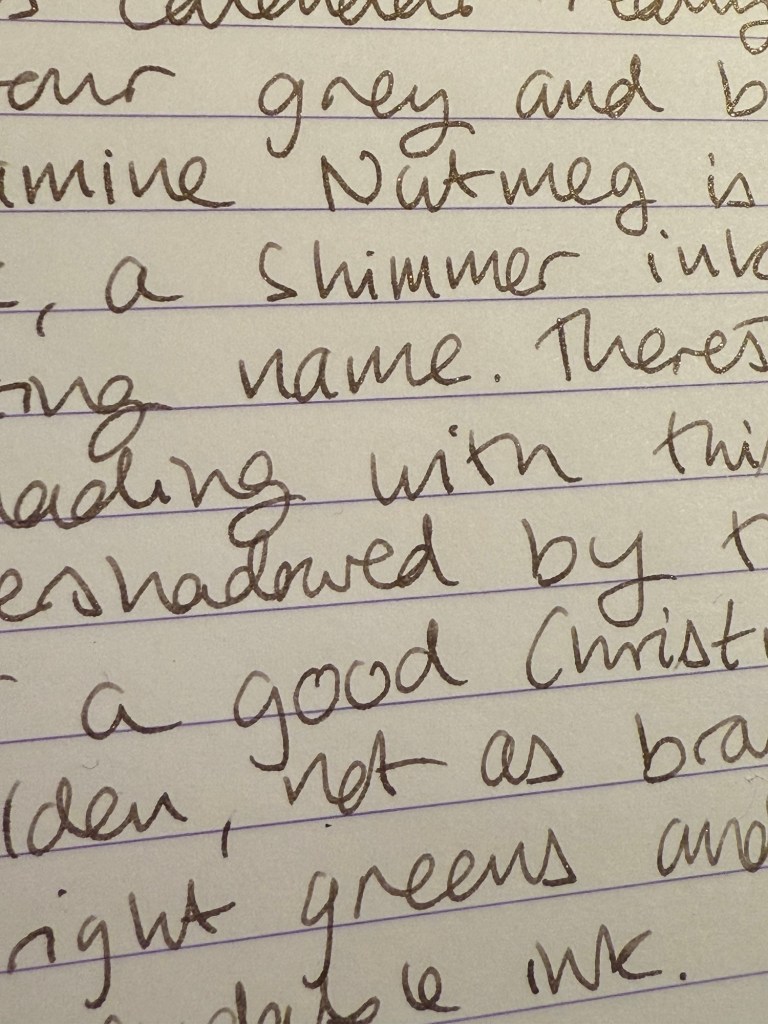 our grey and b
amine Nutmeg is
, a Shimmer ink
ing name. Theres
ading with thi
ershadowed by t
a good Christ
lden, not as bra
right greens and
ink.